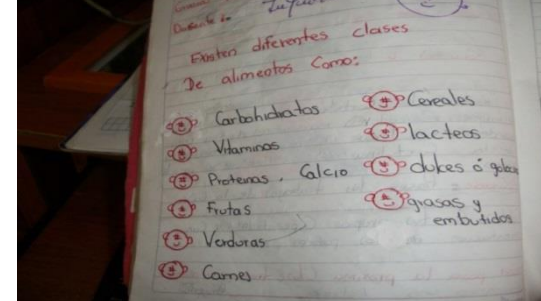 Existen diferentes clases
De alimentos Como:
Carbohidratos
Vitaminas
Proteinas. Calcio
Frutas
Verduras
Carnes
Cereales
lacteos
dulces ó
grasas y
embutidos